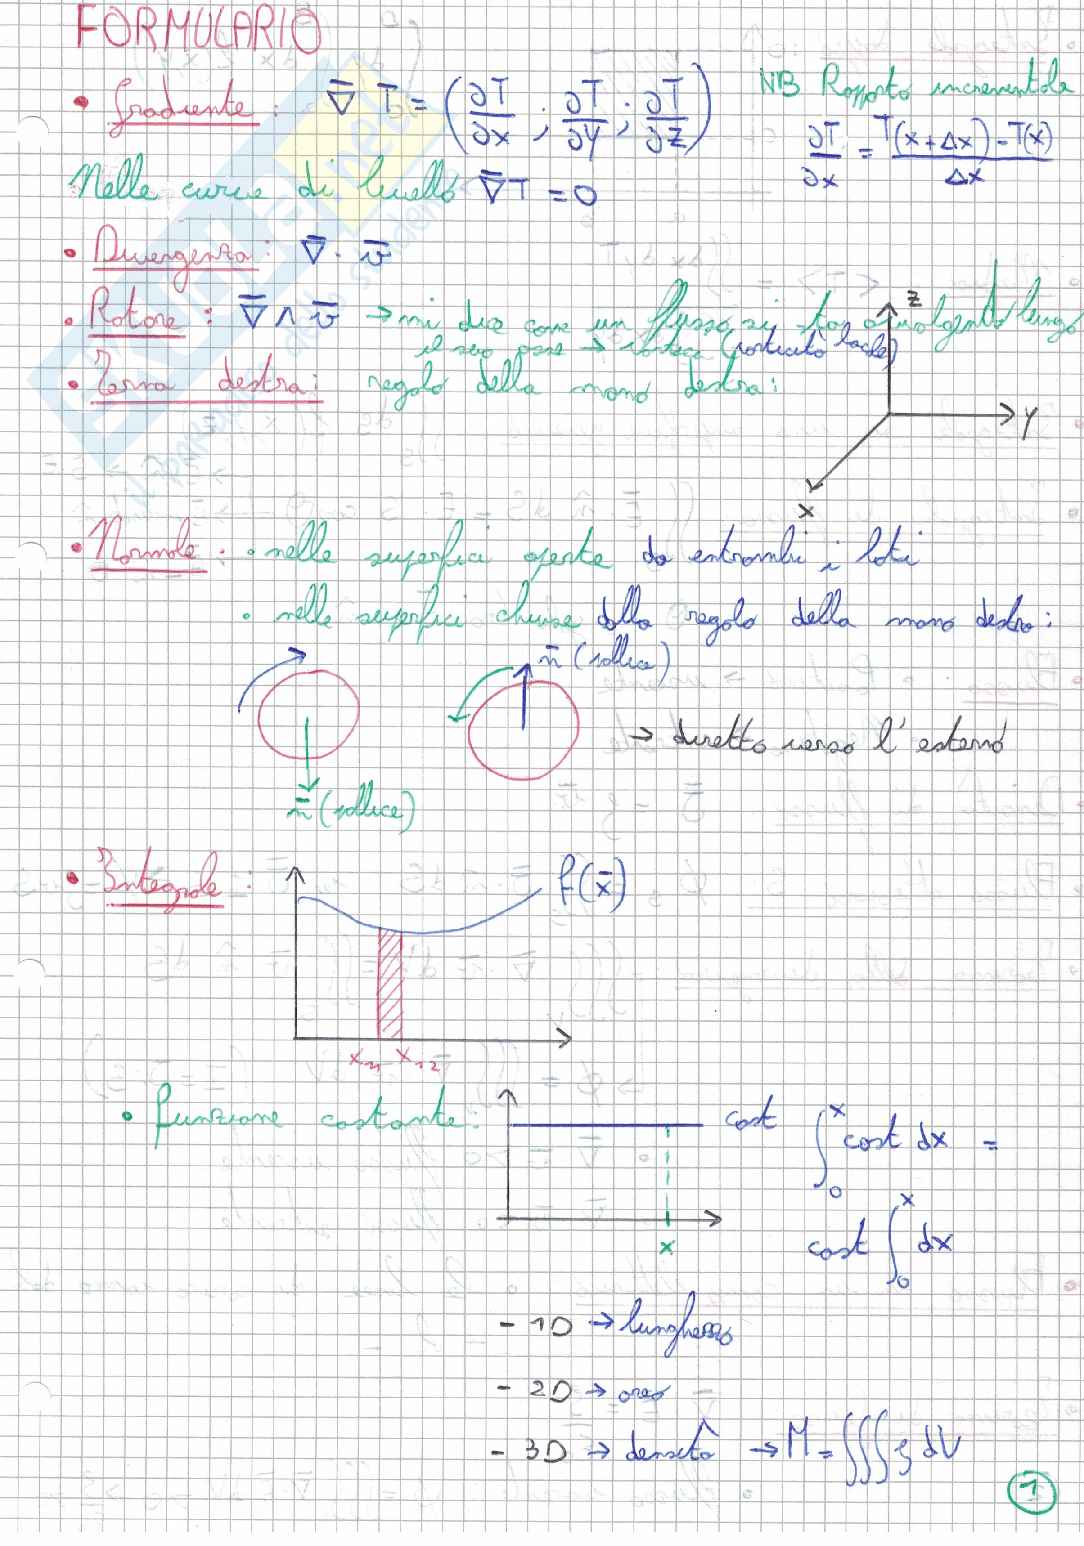 FORMULARIO
• Gradiente : ∇̄ T = (∂T/∂x ; ∂T/∂y ; ∂T/∂z)
NB Rapporto incrementale
∂T/∂x = T(x+Δx) - T(x) / Δx
Nelle curve di livello ∇̄T = 0
• Divergenza : ∇̄ · v̄
• Rotore : ∇̄ ∧ v̄ → mi dice come un flusso si sta avvolgendo lungo
il suo asse → vortice (vorticità locale)
• Terna destra : regola della mano destra :
z
y
x
• Normale : • nelle superfici aperte da entrambi i lati
• nelle superfici chiuse dalla regola della mano destra :
n̄ (pollice)
→ diretto verso l'esterno
n̄ (pollice)
• Integrale :
f(x̄)
x₁₁ x₁₂
• funzione costante :
cost
∫₀ˣ cost dx =
cost ∫₀ˣ dx
x
- 1D → lunghezza
- 2D → area
- 3D → densità → M = ∭ ρ dV
1